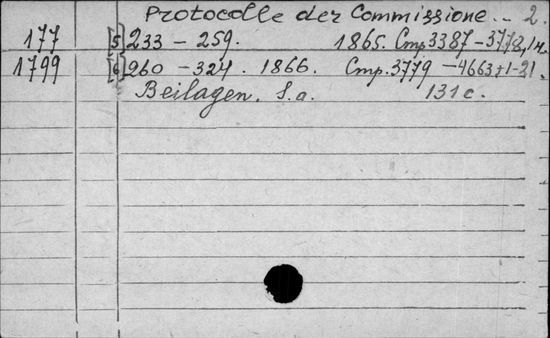 Protocolle der Commissione... 2.
177 [5] 233 - 259. 1865. Cтр. 3387-3778, 1н.
1799 [6] 260 - 324. 1866. Cтр. 3779 - 4663+1-21.
Beilagen. S.a. 131 с.